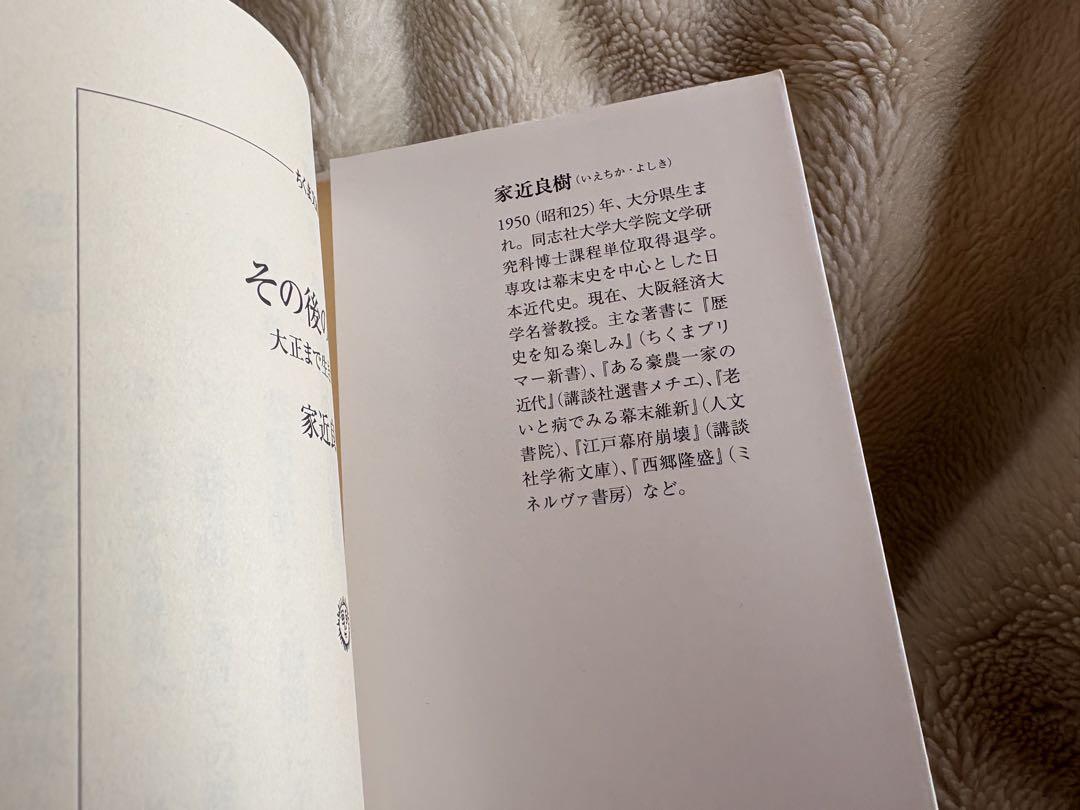 ちくま
その後の
大正まで生き
家近良
家近良樹(いえちか・よしき)
1950(昭和25)年、大分県生ま
れ。同志社大学大学院文学研
究科博士課程単位取得退学。
専攻は幕末史を中心とした日
本近代史。現在、大阪経済大
学名誉教授。主な著書に『歴
史を知る楽しみ』(ちくまプリ
マー新書)、『ある豪農一家の
近代』(講談社選書メチエ)、『老
いと病でみる幕末維新』(人文
書院)、『江戸幕府崩壊』(講談
社学術文庫)、『西郷隆盛』(ミ
ネルヴァ書房)など。